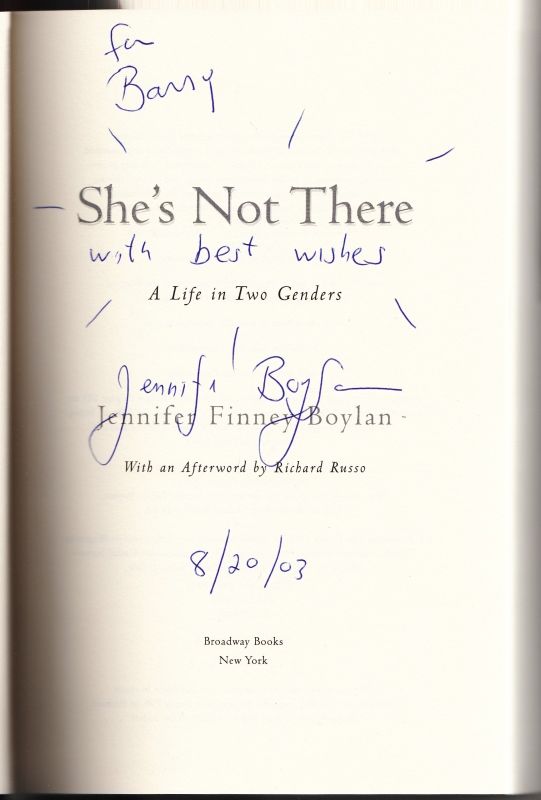 for
Barry
She's Not There
with best wishes
A Life in Two Genders
Jennifer Boylan
Jennifer Finney Boylan
With an Afterword by Richard Russo
8/20/03
Broadway Books
New York